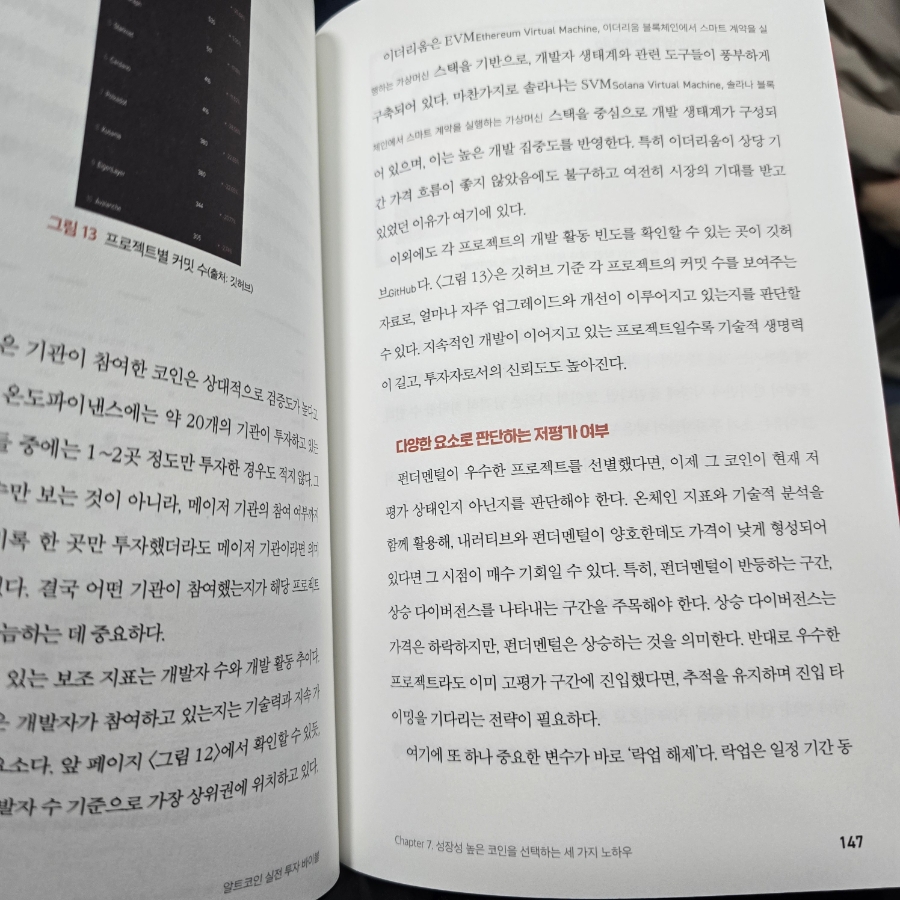 Stellar
Cardano
Polkadot
Astaria
EigenLayer
Avalanche
그림 13 프로젝트별 커밋 수(출처: 깃허브)
은 기관이 참여한 코인은 상대적으로 검증도가 높다고
온도파이낸스에는 약 20개의 기관이 투자하고 있는
들 중에는 1~2곳 정도만 투자한 경우도 적지 않다. 그
수만 보는 것이 아니라, 메이저 기관의 참여 여부까지
록 한 곳만 투자했더라도 메이저 기관이라면 의미
있다. 결국 어떤 기관이 참여했는지가 해당 프로젝트
늠하는 데 중요하다.
있는 보조 지표는 개발자 수와 개발 활동 추이다.
은 개발자가 참여하고 있는지는 기술력과 지속 가
요소다. 앞 페이지 〈그림 12〉에서 확인할 수 있듯,
발자 수 기준으로 가장 상위권에 위치하고 있다.
알트코인 실전 투자 바이블
이더리움은 EVM Ethereum Virtual Machine, 이더리움 블록체인에서 스마트 계약을 실
행하는 가상머신 스택을 기반으로, 개발자 생태계와 관련 도구들이 풍부하게
구축되어 있다. 마찬가지로 솔라나는 SVM Solana Virtual Machine, 솔라나 블록
체인에서 스마트 계약을 실행하는 가상머신 스택을 중심으로 개발 생태계가 구성되
어 있으며, 이는 높은 개발 집중도를 반영한다. 특히 이더리움이 상당 기
간 가격 흐름이 좋지 않았음에도 불구하고 여전히 시장의 기대를 받고
있었던 이유가 여기에 있다.
이외에도 각 프로젝트의 개발 활동 빈도를 확인할 수 있는 곳이 깃허
브GitHub다. 〈그림 13〉은 깃허브 기준 각 프로젝트의 커밋 수를 보여주는
자료로, 얼마나 자주 업그레이드와 개선이 이루어지고 있는지를 판단할
수 있다. 지속적인 개발이 이어지고 있는 프로젝트일수록 기술적 생명력
이 길고, 투자자로서의 신뢰도도 높아진다.
다양한 요소로 판단하는 저평가 여부
펀더멘털이 우수한 프로젝트를 선별했다면, 이제 그 코인이 현재 저
평가 상태인지 아닌지를 판단해야 한다. 온체인 지표와 기술적 분석을
함께 활용해, 내러티브와 펀더멘털이 양호한데도 가격이 낮게 형성되어
있다면 그 시점이 매수 기회일 수 있다. 특히, 펀더멘털이 반등하는 구간,
상승 다이버전스를 나타내는 구간을 주목해야 한다. 상승 다이버전스는
가격은 하락하지만, 펀더멘털은 상승하는 것을 의미한다. 반대로 우수한
프로젝트라도 이미 고평가 구간에 진입했다면, 추적을 유지하며 진입 타
이밍을 기다리는 전략이 필요하다.
여기에 또 하나 중요한 변수가 바로 '락업 해제'다. 락업은 일정 기간 동
Chapter 7. 성장성 높은 코인을 선택하는 세 가지 노하우
147